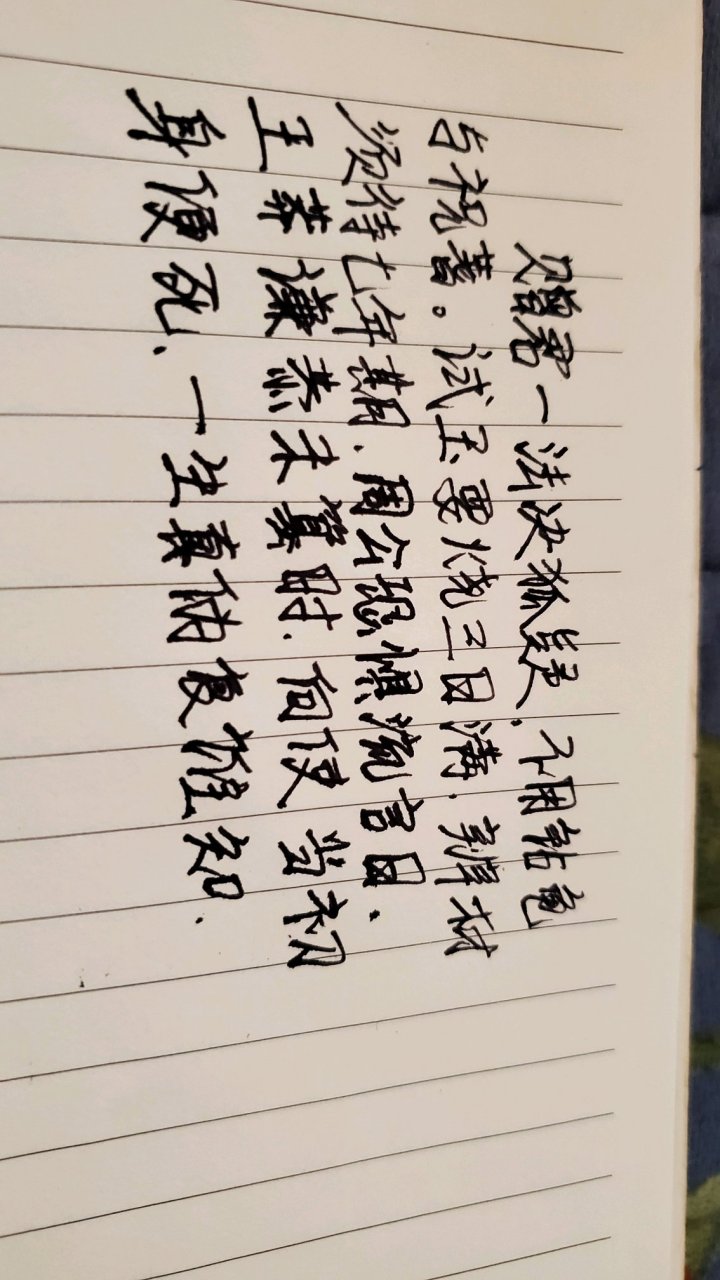 赠君一法决狐疑.不用鉆龟
与祝蓍。试玉要烧三日满.辨材
须待七年期.周公恐惧流言日.
王莽谦恭未篡时.向使当初
身便死、一生真伪复谁知.